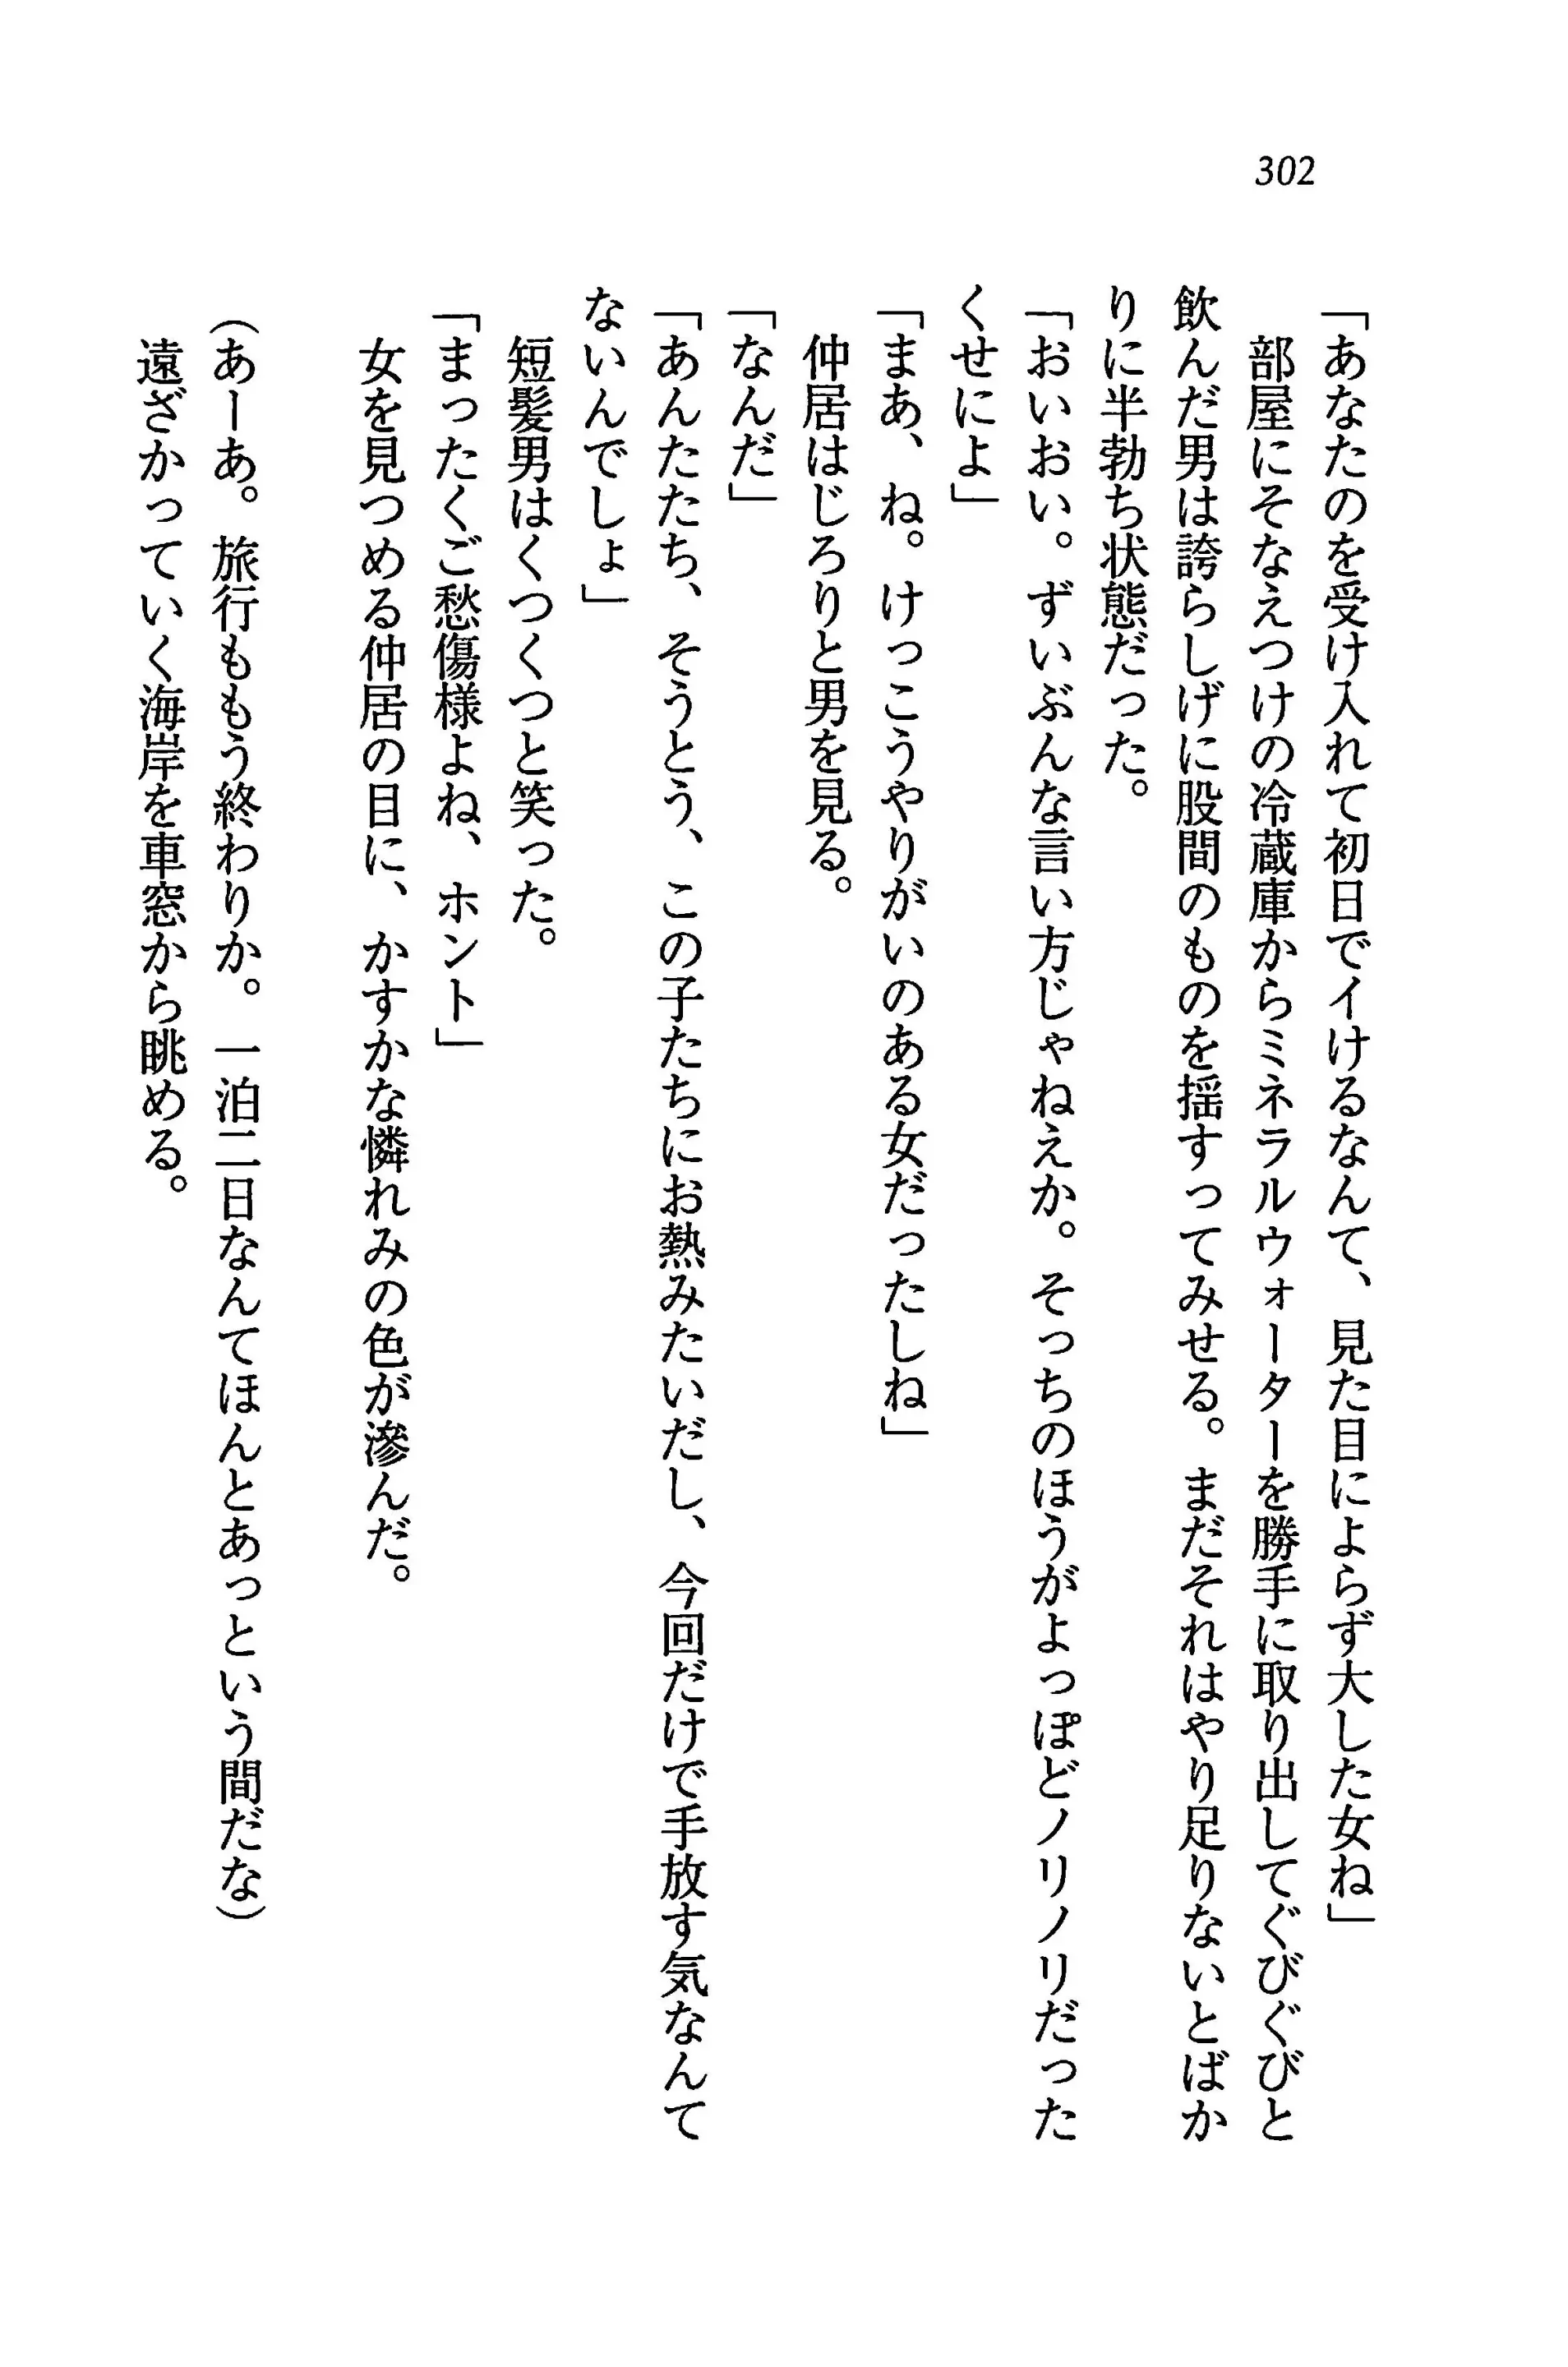 302
「あなたのを受け入れて初日でイけるなんて、見た目によらず大した女ね」
部屋にそなえつけの冷蔵庫からミネラルウォーターを勝手に取り出してぐびぐびと
飲んだ男は誇らしげに股間のものを揺すってみせる。まだそれはやり足りないとばか
りに半勃ち状態だった。
「おいおい。ずいぶんな言い方じゃねえか。そっちのほうがよっぽどノリノリだった
くせによ」
「まあ、ね。けっこうやりがいのある女だったしね」
仲居はじろりと男を見る。
「なんだ」
「あんたたち、そうとう、この子たちにお熱みたいだし、今回だけで手放す気なんて
ないんでしょ」
短髪男はくつくつと笑った。
「まったくご愁傷様よね、ホント」
女を見つめる仲居の目に、かすかな憐れみの色が滲んだ。
(あーあ。旅行ももう終わりか。一泊二日なんてほんとあっという間だな)
遠ざかっていく海岸を車窓から眺める。